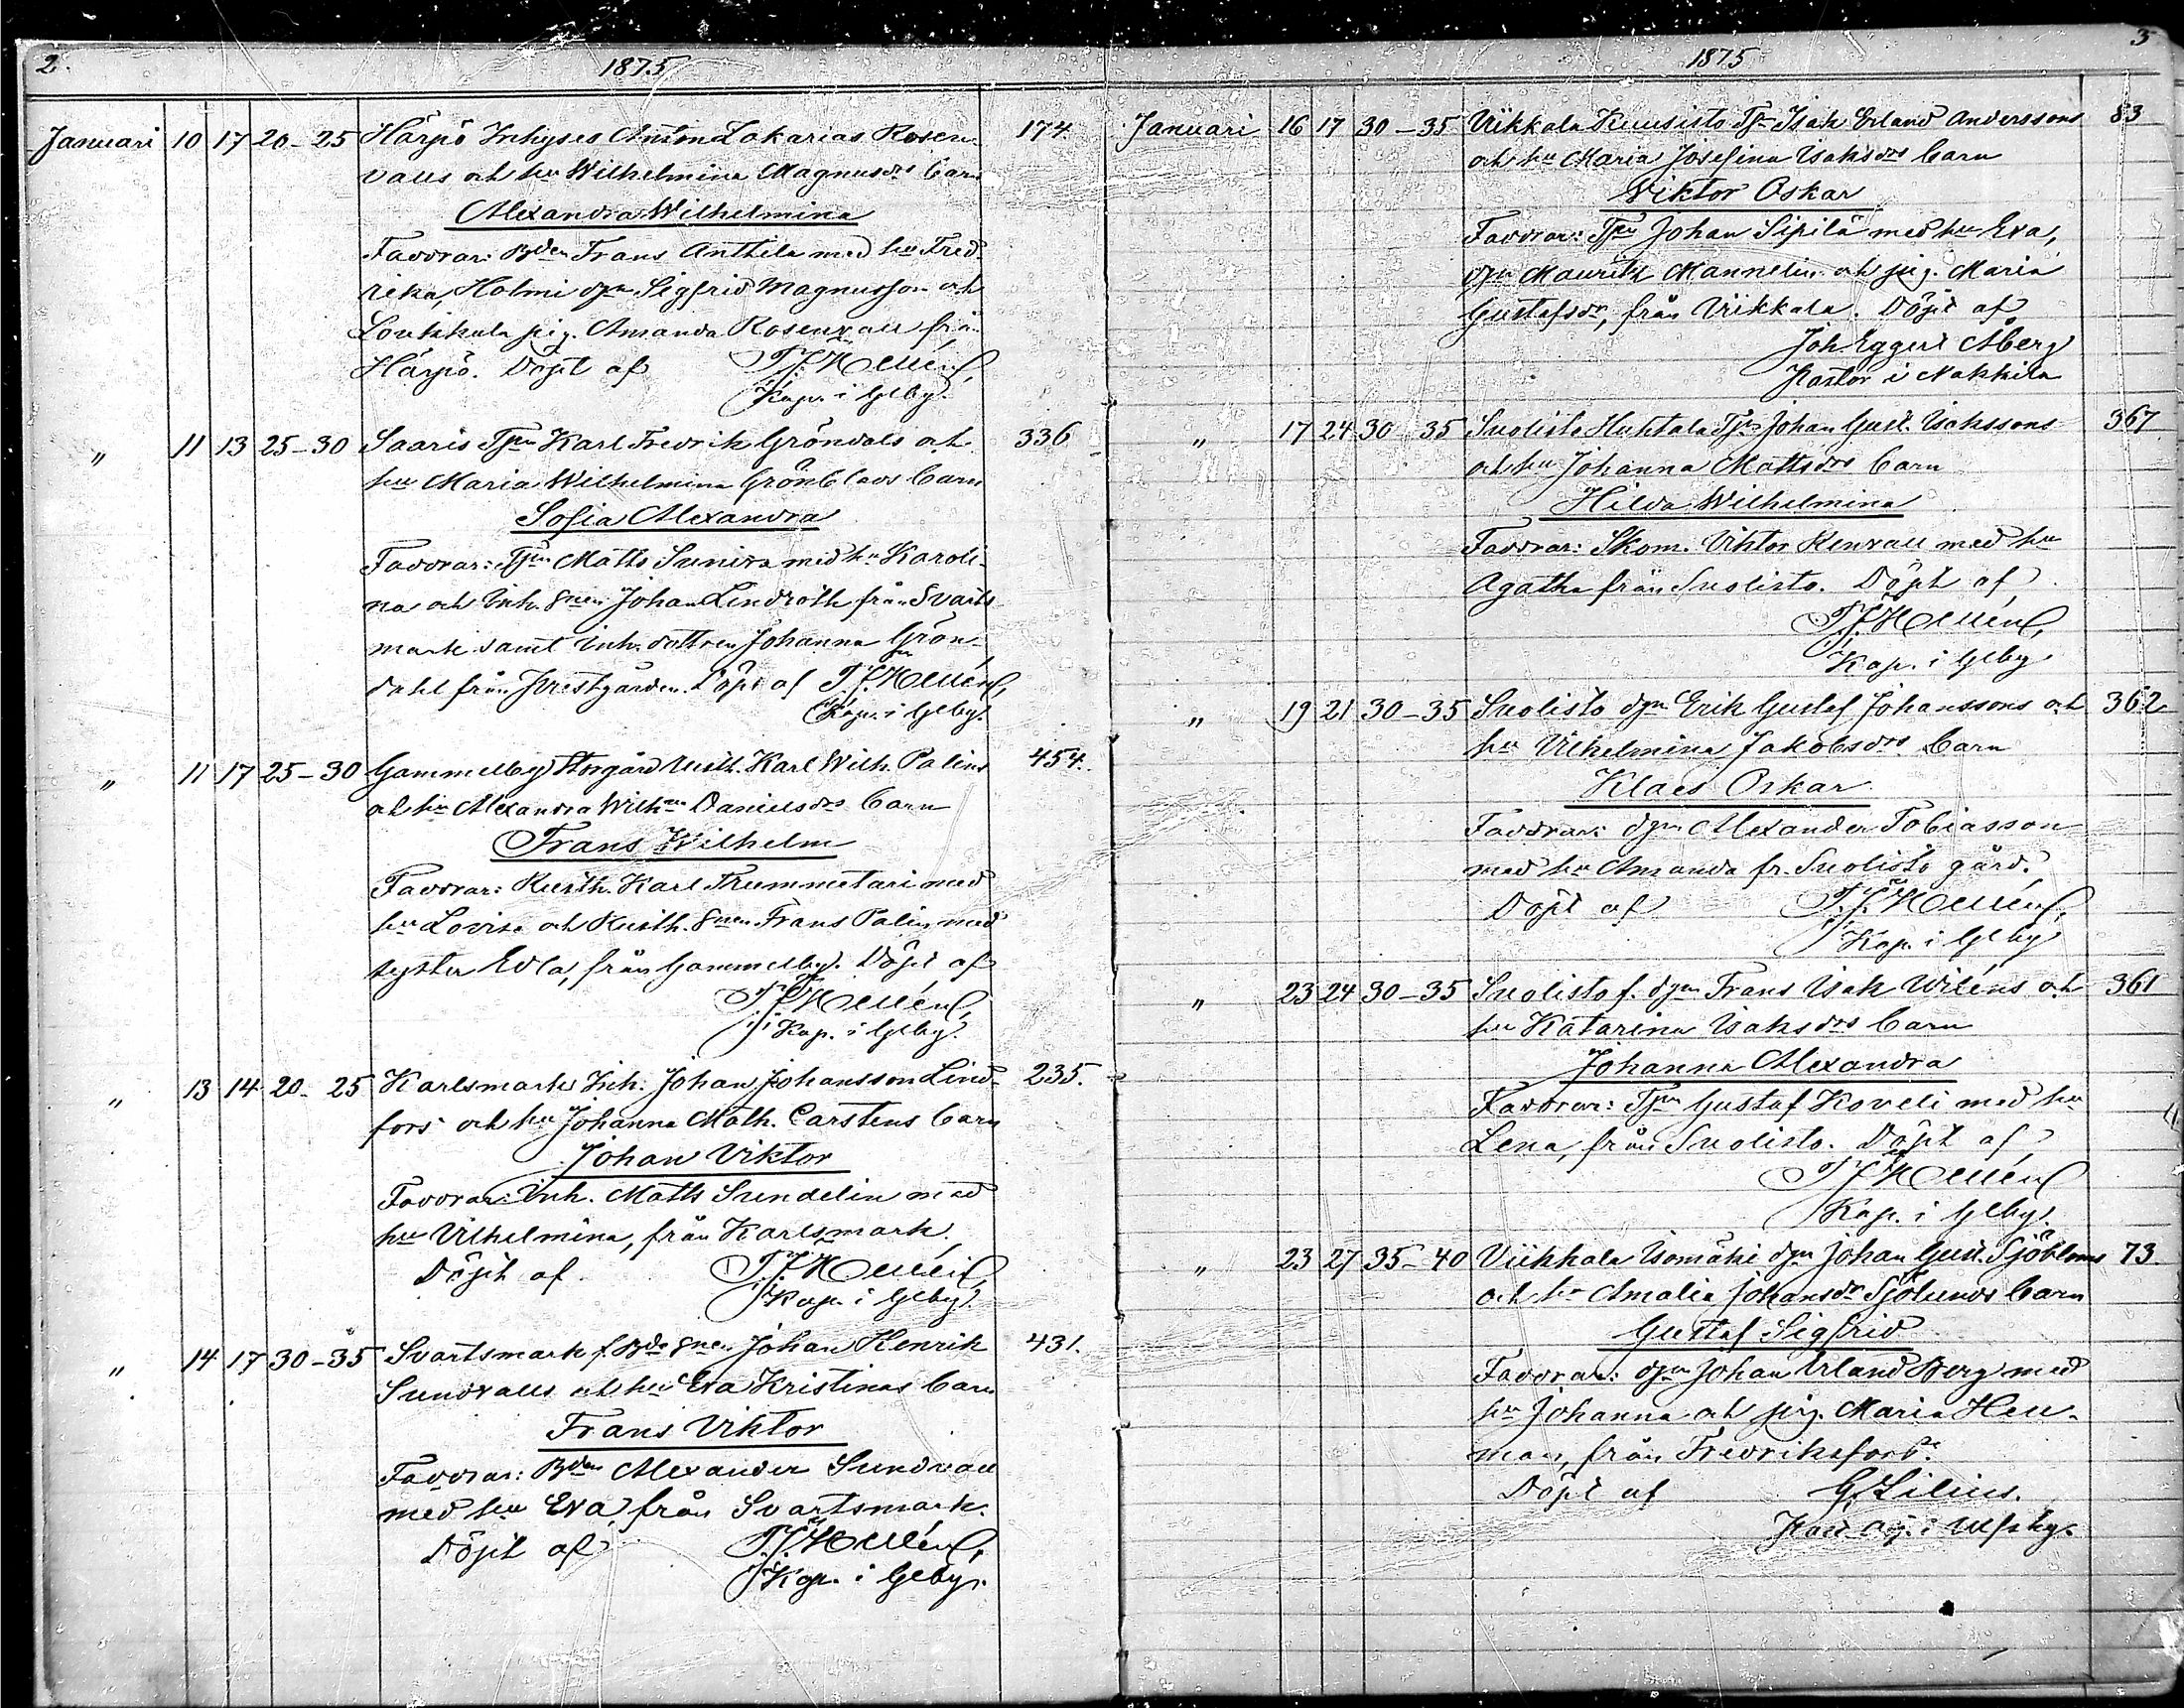 2.
1875
Januari 10 17 20-25 Härpö Inhyses Anton Zakarias Rosen- 174
valls och hu Wilhelmina Magnusdrs barn
Alexandra Wilhelmina
Faddrar: Bden Frans Anttila med hu Fred-
rika, Holmi dgn Sigfrid Magnusson och
Loukkula pig. Amanda Rosenvall från
Härpö. Döpt af T.J. Hellén,
Kap. i Glby.
" 11 13 25-30 Saaris Tjn Karl Fredrik Gröndals och 336
hu Maria Wilhelmina Grönblads barn
Sofia Alexandra
Faddrar: Tjn Matts Sunira med hu Karoli-
na och Inh. snen Johan Lindroth från Svarts-
mark samt inh. dottren Johanna Grön-
dahl från Prestgården. Döpt af T.J. Hellén,
Kap. i Glby.
" 11 17 25-30 Gammelby Storgård Kusth. Karl Wilh. Palins 454.
och hu Alexandra Wilhna Danielsdrs barn
Frans Wilhelm
Faddrar: Kusth. Karl Trummetari med
hu Lovisa och Kusth. snen Frans Palin med
syster Evla, från Gammelby. Döpt af
T.J. Hellén,
Kap. i Glby.
" 13 14 20-25 Karlsmark Inh. Johan Johansson Lind- 235.
fors och hu Johanna Math. Carstens barn
Johan Viktor
Faddrar: Inh. Matts Sundelin med
hu Vilhelmina, från Karlsmark.
Döpt af T.J. Hellén,
Kap. i Glby.
" 14 17 30-35 Svartsmark f. Bde snen Johan Henrik 431.
Sundvalls och hu Eva Kristinas barn
Frans Viktor
Faddrar: Bden Alexander Sundvall
med hu Eva, från Svartsmark.
Döpt af T.J. Hellén,
Kap. i Glby.
3
1875
Januari 16 17 30-35 Viikkala Kuusisto Tjn Isak Erland Anderssons 83
och hu Maria Josefina Isaksdrs barn
Viktor Oskar
Faddrar: Tjn Johan Sipilä med hu Eva,
dgn Maurits Mannelin och pig. Maria
Gustafsdr, från Viikkala. Döpt af
Joh. Eggert Åberg
Pastor i Nakkila
" 17 24 30-35 Suolisto Huhtala Tjn Johan Gust. Isakssons 367
och hu Johanna Mattsdrs barn
Hilda Wilhelmina
Faddrar: Skom. Viktor Renvall med hu
Agatha från Suolisto. Döpt af
T.J. Hellén,
Kap. i Glby
" 19 21 30-35 Suolisto dgn Erik Gustaf Johanssons och 362
hu Vilhelmina Jakobsdrs barn
Klaes Oskar
Faddrar: dgn Alexander Tobiasson
med hu Amanda fr. Suolisto gård.
Döpt af T.J. Hellén,
Kap. i Glby
" 23 24 30-35 Suolisto f. dgn Frans Isak Viléns och 361
hu Katarina Isaksdrs barn
Johanna Alexandra
Faddrar: Tjn Gustaf Koveli med hu
Lena, från Suolisto. Döpt af
T.J. Hellén
Kap. i Glby.
" 23 27 35-40 Viikkala Isomäki dgn Johan Gust. Sjöbloms 73
och hu Amalia Johansdr Sjölunds barn
Gustaf Sigfrid
Faddrar: dgn Johan Erland Berg med
hu Johanna och pig. Maria Hell-
man, från Fredriksfors.
Döpt af G. Lilius.
Kap. i Ulfsby.